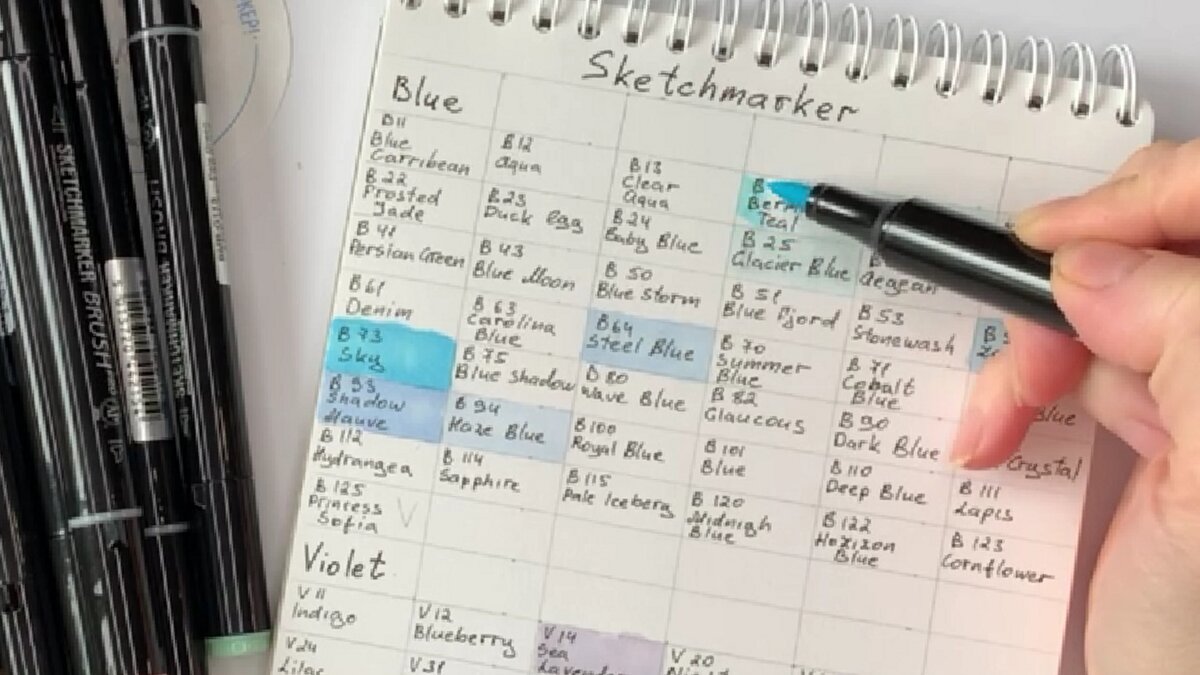 KEP!
SKETCHMARKER BRUSH
Sketchmarker
Blue
B11
Blue
Carribean
B12
aqua
B13
Clear
Aqua
B
Berry
Teal
B 22
Frosted
Jade
B 23
Duck Egg
B 24
Baby Blue
B 25
Glacier Blue
Aegean
B 41
Persian Green
B 43
Blue Moon
B 50
Blue Storm
B 51
Blue Fjord
B 53
Stonewash
B 61
Denim
B 63
Carolina
Blue
B 64
Steel Blue
B 70
Summer
Blue
B 71
Cobalt
Blue
Blue
B 73
Sky
B 75
Blue Shadow
B 80
Wave Blue
B 82
Glaucous
B 90
Dark Blue
Crystal
B 93
Shadow
Mauve
B 94
Haze Blue
B 100
Royal Blue
B 101
Blue
B 110
Deep Blue
B 111
Lapis
B 112
Hydrangea
B 114
Sapphire
B 115
Pale Iceberg
B 120
Midnigh
Blue
B 122
Horizon
Blue
B 123
Cornflower
B 125
Princess
Sofia
Violet
V 11
Indigo
V 12
Blueberry
V 14
Sea
Lavender
V 20
V 24
Lilac
V 31